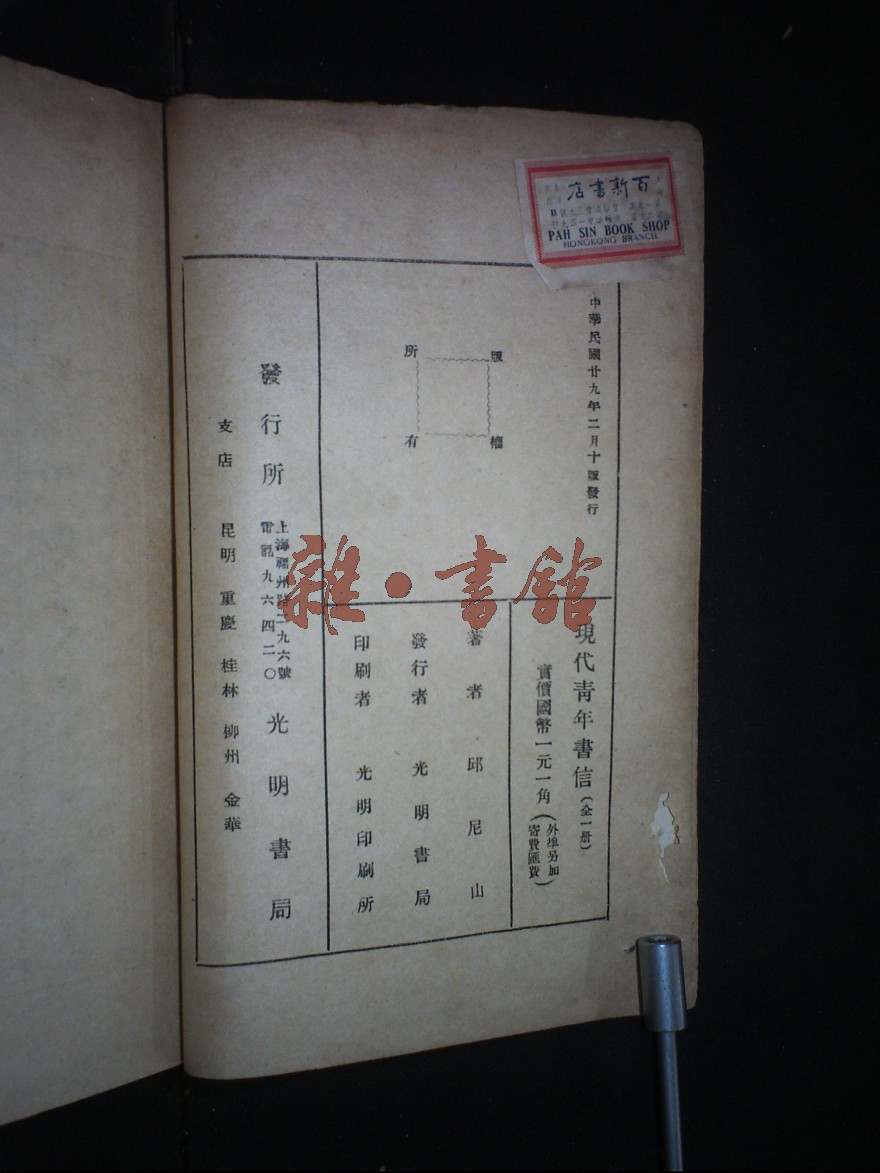 百新書店
PAH SIN BOOK SHOP
HONGKONG BRANCH
中華民國廿九年二月十版發行
版權
所有
現代青年書信（全一册）
實價國幣一元一角（外埠另加寄費匯費）
著者 邱尼山
發行者 光明書局
印刷者 光明印刷所
發行所
上海福州路二九六號
電話九六四二〇
光明書局
支店 昆明 重慶 桂林 柳州 金華
雜·書館